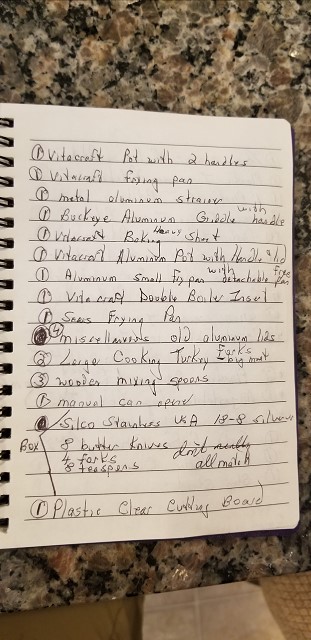 ① Vitacraft Pot with 2 handles
① Vitacraft frying pan
① metal aluminum strainer
① Buckeye Aluminum Griddle with handle
① Vitacraft Baking Heavy Sheet
① Vitacraft Aluminum Pot with Handle & lid
① Aluminum small Fry pan with detachable pan
① Vita craft Double Boiler Insert
① Sears Frying Pan
④ miscellaneous old aluminum lids
② Large Cooking Turkey Forks big meat
③ wooden mixing spoons
① manual can opener
Silco Stainless USA 18-8 silver
Box
8 butter knives don't really
4 forks all match
8 teaspons
① Plastic Clear Cutting Board